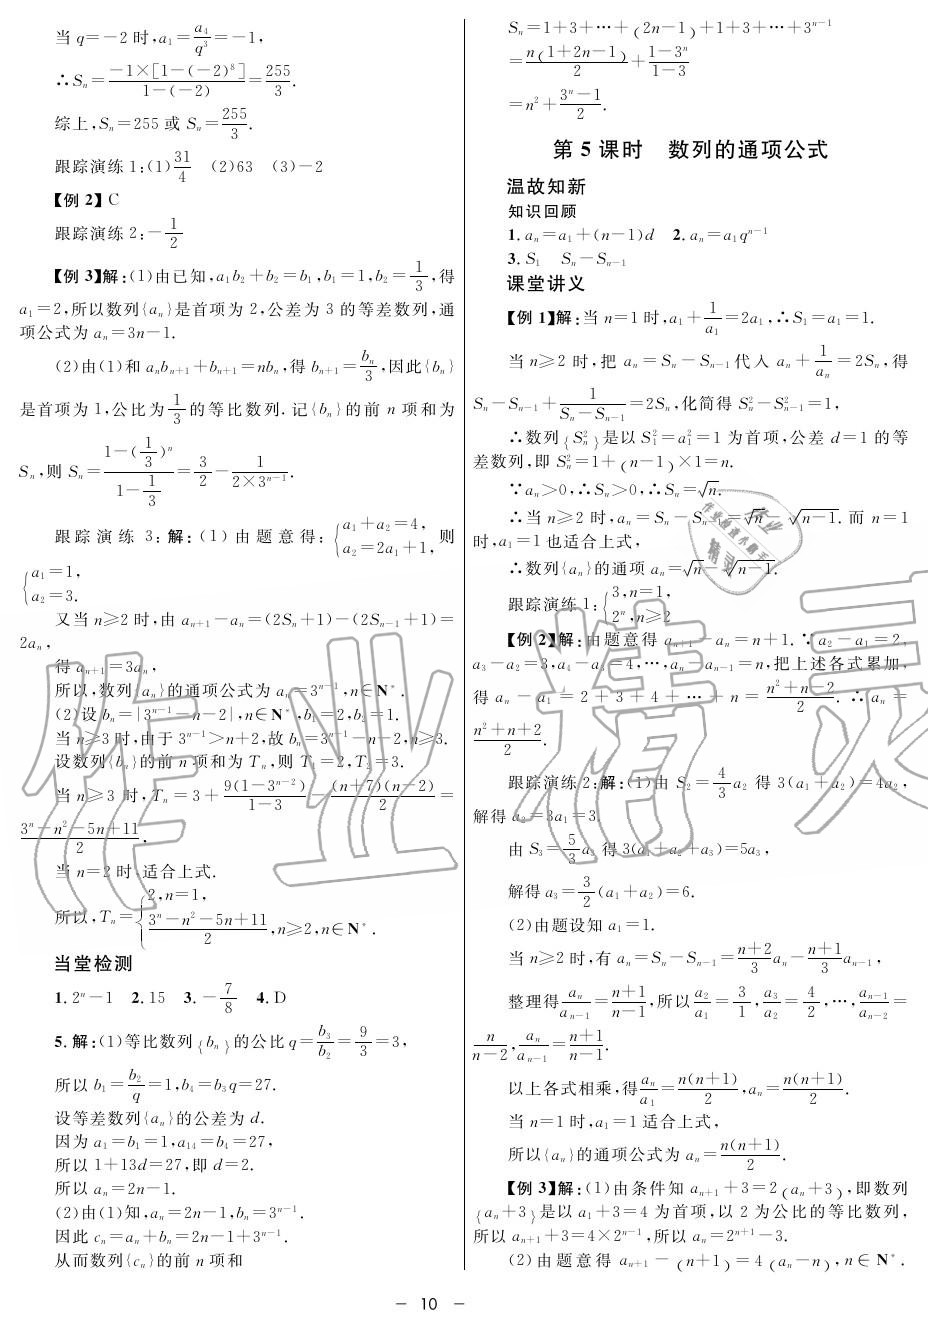 当 q=-2 时,a₁=a₄/q³=-1,
∴Sₙ=-1×[1-(-2)⁸]/1-(-2)=255/3.
综上,Sₙ=255 或 Sₙ=255/3.
跟踪演练 1:(1)31/4 (2)63 (3)-2
【例 2】C
跟踪演练 2:-1/2
【例 3】解:(1)由已知,a₁b₂+b₂=b₁,b₁=1,b₂=1/3,得
a₁=2,所以数列{aₙ}是首项为 2,公差为 3 的等差数列,通
项公式为 aₙ=3n-1.
(2)由(1)和 aₙbₙ₊₁+bₙ₊₁=nbₙ,得 bₙ₊₁=bₙ/3,因此{bₙ}
是首项为 1,公比为1/3的等比数列.记{bₙ}的前 n 项和为
Sₙ,则 Sₙ=1-(1/3)ⁿ/1-1/3=3/2-1/2×3ⁿ⁻¹.
跟踪演练 3:解:(1)由题意得:{a₁+a₂=4, a₂=2a₁+1,则
{a₁=1, a₂=3.
又当 n≥2 时,由 aₙ₊₁-aₙ=(2Sₙ+1)-(2Sₙ₋₁+1)=
2aₙ,
得 aₙ₊₁=3aₙ,
所以,数列{aₙ}的通项公式为 aₙ=3ⁿ⁻¹,n∈N*.
(2)设 bₙ=|3ⁿ⁻¹-n-2|,n∈N*,b₁=2,b₂=1.
当 n≥3 时,由于 3ⁿ⁻¹>n+2,故 bₙ=3ⁿ⁻¹-n-2,n≥3.
设数列{bₙ}的前 n 项和为 Tₙ,则 T₁=2,T₂=3.
当 n≥3 时,Tₙ=3+9(1-3ⁿ⁻²)/1-3-(n+7)(n-2)/2=
3ⁿ-n²-5n+11/2,
当 n=2 时,适合上式.
所以,Tₙ={2,n=1, 3ⁿ-n²-5n+11/2,n≥2,n∈N*.
当堂检测
1. 2ⁿ-1 2. 15 3. -7/8 4. D
5. 解:(1)等比数列{bₙ}的公比 q=b₃/b₂=9/3=3,
所以 b₁=b₂/q=1,b₄=b₃q=27.
设等差数列{aₙ}的公差为 d.
因为 a₁=b₁=1,a₁₄=b₄=27,
所以 1+13d=27,即 d=2.
所以 aₙ=2n-1.
(2)由(1)知,aₙ=2n-1,bₙ=3ⁿ⁻¹.
因此 cₙ=aₙ+bₙ=2n-1+3ⁿ⁻¹.
从而数列{cₙ}的前 n 项和
Sₙ=1+3+…+(2n-1)+1+3+…+3ⁿ⁻¹
=n(1+2n-1)/2+1-3ⁿ/1-3
=n²+3ⁿ-1/2.
第 5 课时 数列的通项公式
温故知新
知识回顾
1. aₙ=a₁+(n-1)d 2. aₙ=a₁qⁿ⁻¹
3. S₁ Sₙ-Sₙ₋₁
课堂讲义
【例 1】解:当 n=1 时,a₁+1/a₁=2a₁,∴S₁=a₁=1.
当 n≥2 时,把 aₙ=Sₙ-Sₙ₋₁代入 aₙ+1/aₙ=2Sₙ,得
Sₙ-Sₙ₋₁+1/Sₙ-Sₙ₋₁=2Sₙ,化简得 Sₙ²-Sₙ₋₁²=1,
∴数列{Sₙ²}是以 S₁²=a₁²=1 为首项,公差 d=1 的等
差数列,即 Sₙ²=1+(n-1)×1=n.
∵aₙ>0,∴Sₙ>0,∴Sₙ=√n.
∴当 n≥2 时,aₙ=Sₙ-Sₙ₋₁=√n-√n-1.而 n=1
时,a₁=1 也适合上式,
∴数列{aₙ}的通项 aₙ=√n-√n-1.
跟踪演练 1:{3,n=1, 2ⁿ,n≥2
【例 2】解:由题意得 aₙ₊₁-aₙ=n+1.∵a₂-a₁=2,
a₃-a₂=3,a₄-a₃=4,…,aₙ-aₙ₋₁=n,把上述各式累加,
得 aₙ-a₁=2+3+4+…+n=n²+n-2/2.∴aₙ=
n²+n+2/2.
跟踪演练 2:解:(1)由 S₂=4/3a₂ 得 3(a₁+a₂)=4a₂,
解得 a₂=3a₁=3.
由 S₃=5/3a₃ 得 3(a₁+a₂+a₃)=5a₃,
解得 a₃=3/2(a₁+a₂)=6.
(2)由题设知 a₁=1.
当 n≥2 时,有 aₙ=Sₙ-Sₙ₋₁=n+2/3aₙ-n+1/3aₙ₋₁,
整理得aₙ/aₙ₋₁=n+1/n-1,所以a₂/a₁=3/1,a₃/a₂=4/2,…,aₙ₋₁/aₙ₋₂=
n/n-2,aₙ/aₙ₋₁=n+1/n-1.
以上各式相乘,得aₙ/a₁=n(n+1)/2,aₙ=n(n+1)/2.
当 n=1 时,a₁=1 适合上式,
所以{aₙ}的通项公式为 aₙ=n(n+1)/2.
【例 3】解:(1)由条件知 aₙ₊₁+3=2(aₙ+3),即数列
{aₙ+3}是以 a₁+3=4 为首项,以 2 为公比的等比数列,
所以 aₙ₊₁+3=4×2ⁿ⁻¹,所以 aₙ=2ⁿ⁺¹-3.
(2)由题意得 aₙ₊₁-(n+1)=4(aₙ-n),n∈N*.
- 10 -
作业精灵